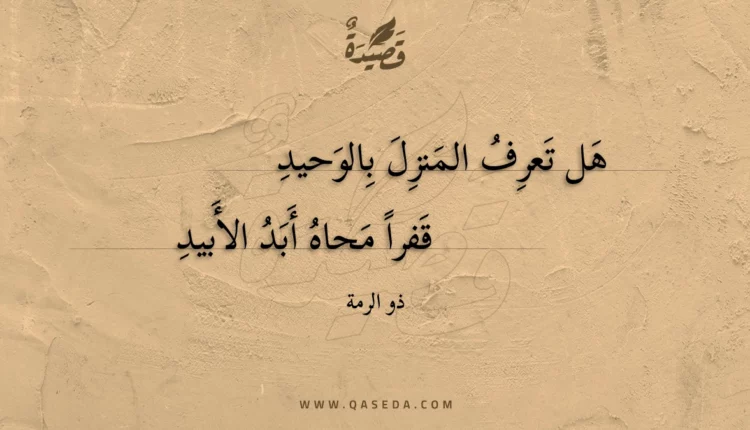 قَصِيْدَةٌ
هَل تَعرِفُ المَنزِلَ بِالوَحيدِ
قَفراً مَحاهُ أَبَدُ الأَبيدِ
ذو الرمة
WWW.QASEDA.COM